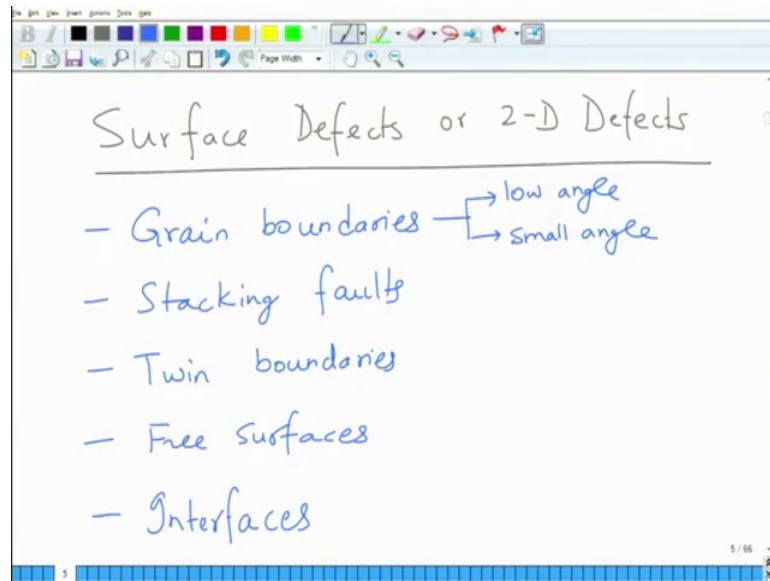 File Edit View Insert Actions Tools Help
B I
Page Width
Surface Defects or 2-D Defects
- Grain boundaries → low angle
→ small angle
- Stacking faults
- Twin boundaries
- Free surfaces
- Interfaces
5 / 66
5